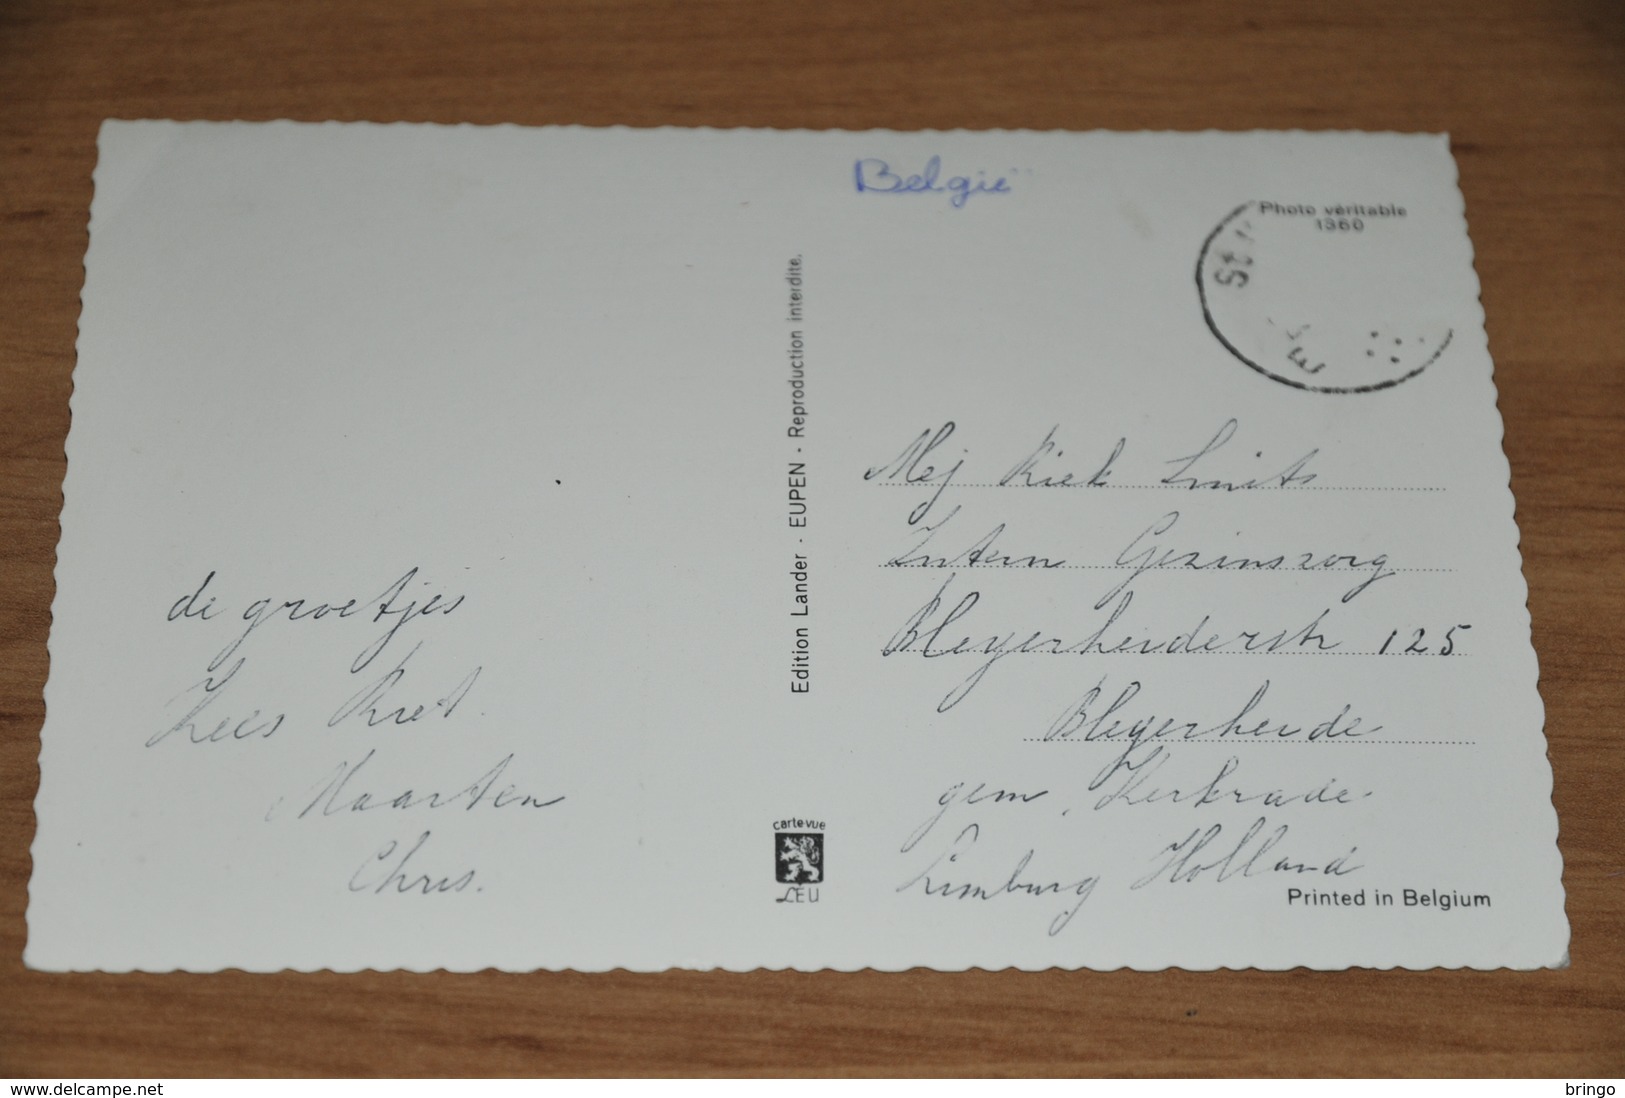 België
Photo véritable
1360
de groetjes
Kees Riet
Maarten
Chris.
Edition Lander - EUPEN - Reproduction interdite.
carte vue
LEU
Mej Riek Smits
Intern Gezinszorg
Bleyerheiderstr 125
Bleyerheide
gem. Kerkrade
Limburg Holland
Printed in Belgium
www.delcampe.net
bringo